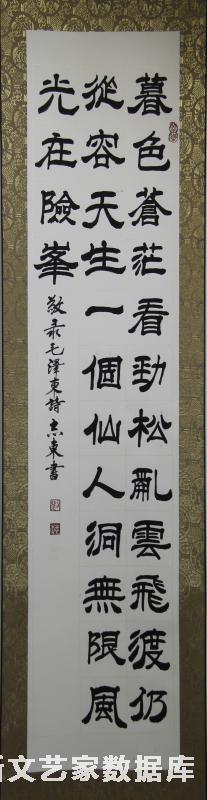 暮色蒼茫看勁松亂雲飛渡仍
從容天生一個仙人洞無限風
光在險峯
敬录毛澤東詩 志東書
文艺家数据库